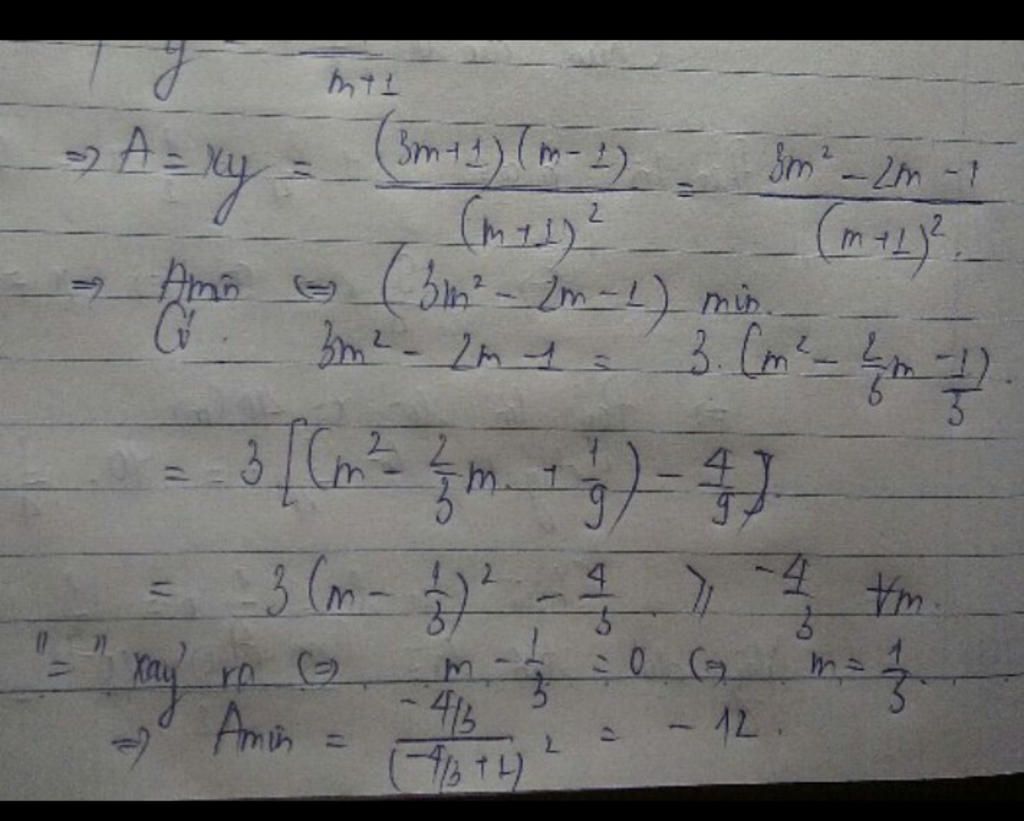 y = m+1
⇒ A = xy = (3m+1)(m-1) / (m+1)² = 3m² - 2m - 1 / (m+1)².
⇒ Amin ⇔ (3m² - 2m - 1) min.
Có. 3m² - 2m - 1 = 3.(m² - 2/3 m - 1/3).
= 3[(m² - 2/3 m. + 1/9) - 4/9].
= 3(m - 1/3)² - 4/3 ≥ -4/3 ∀m.
"=" xảy ra ⇔ m - 1/3 = 0 ⇔ m = 1/3.
⇒ Amin = -4/3 / (-4/3 + 1)² = -12.